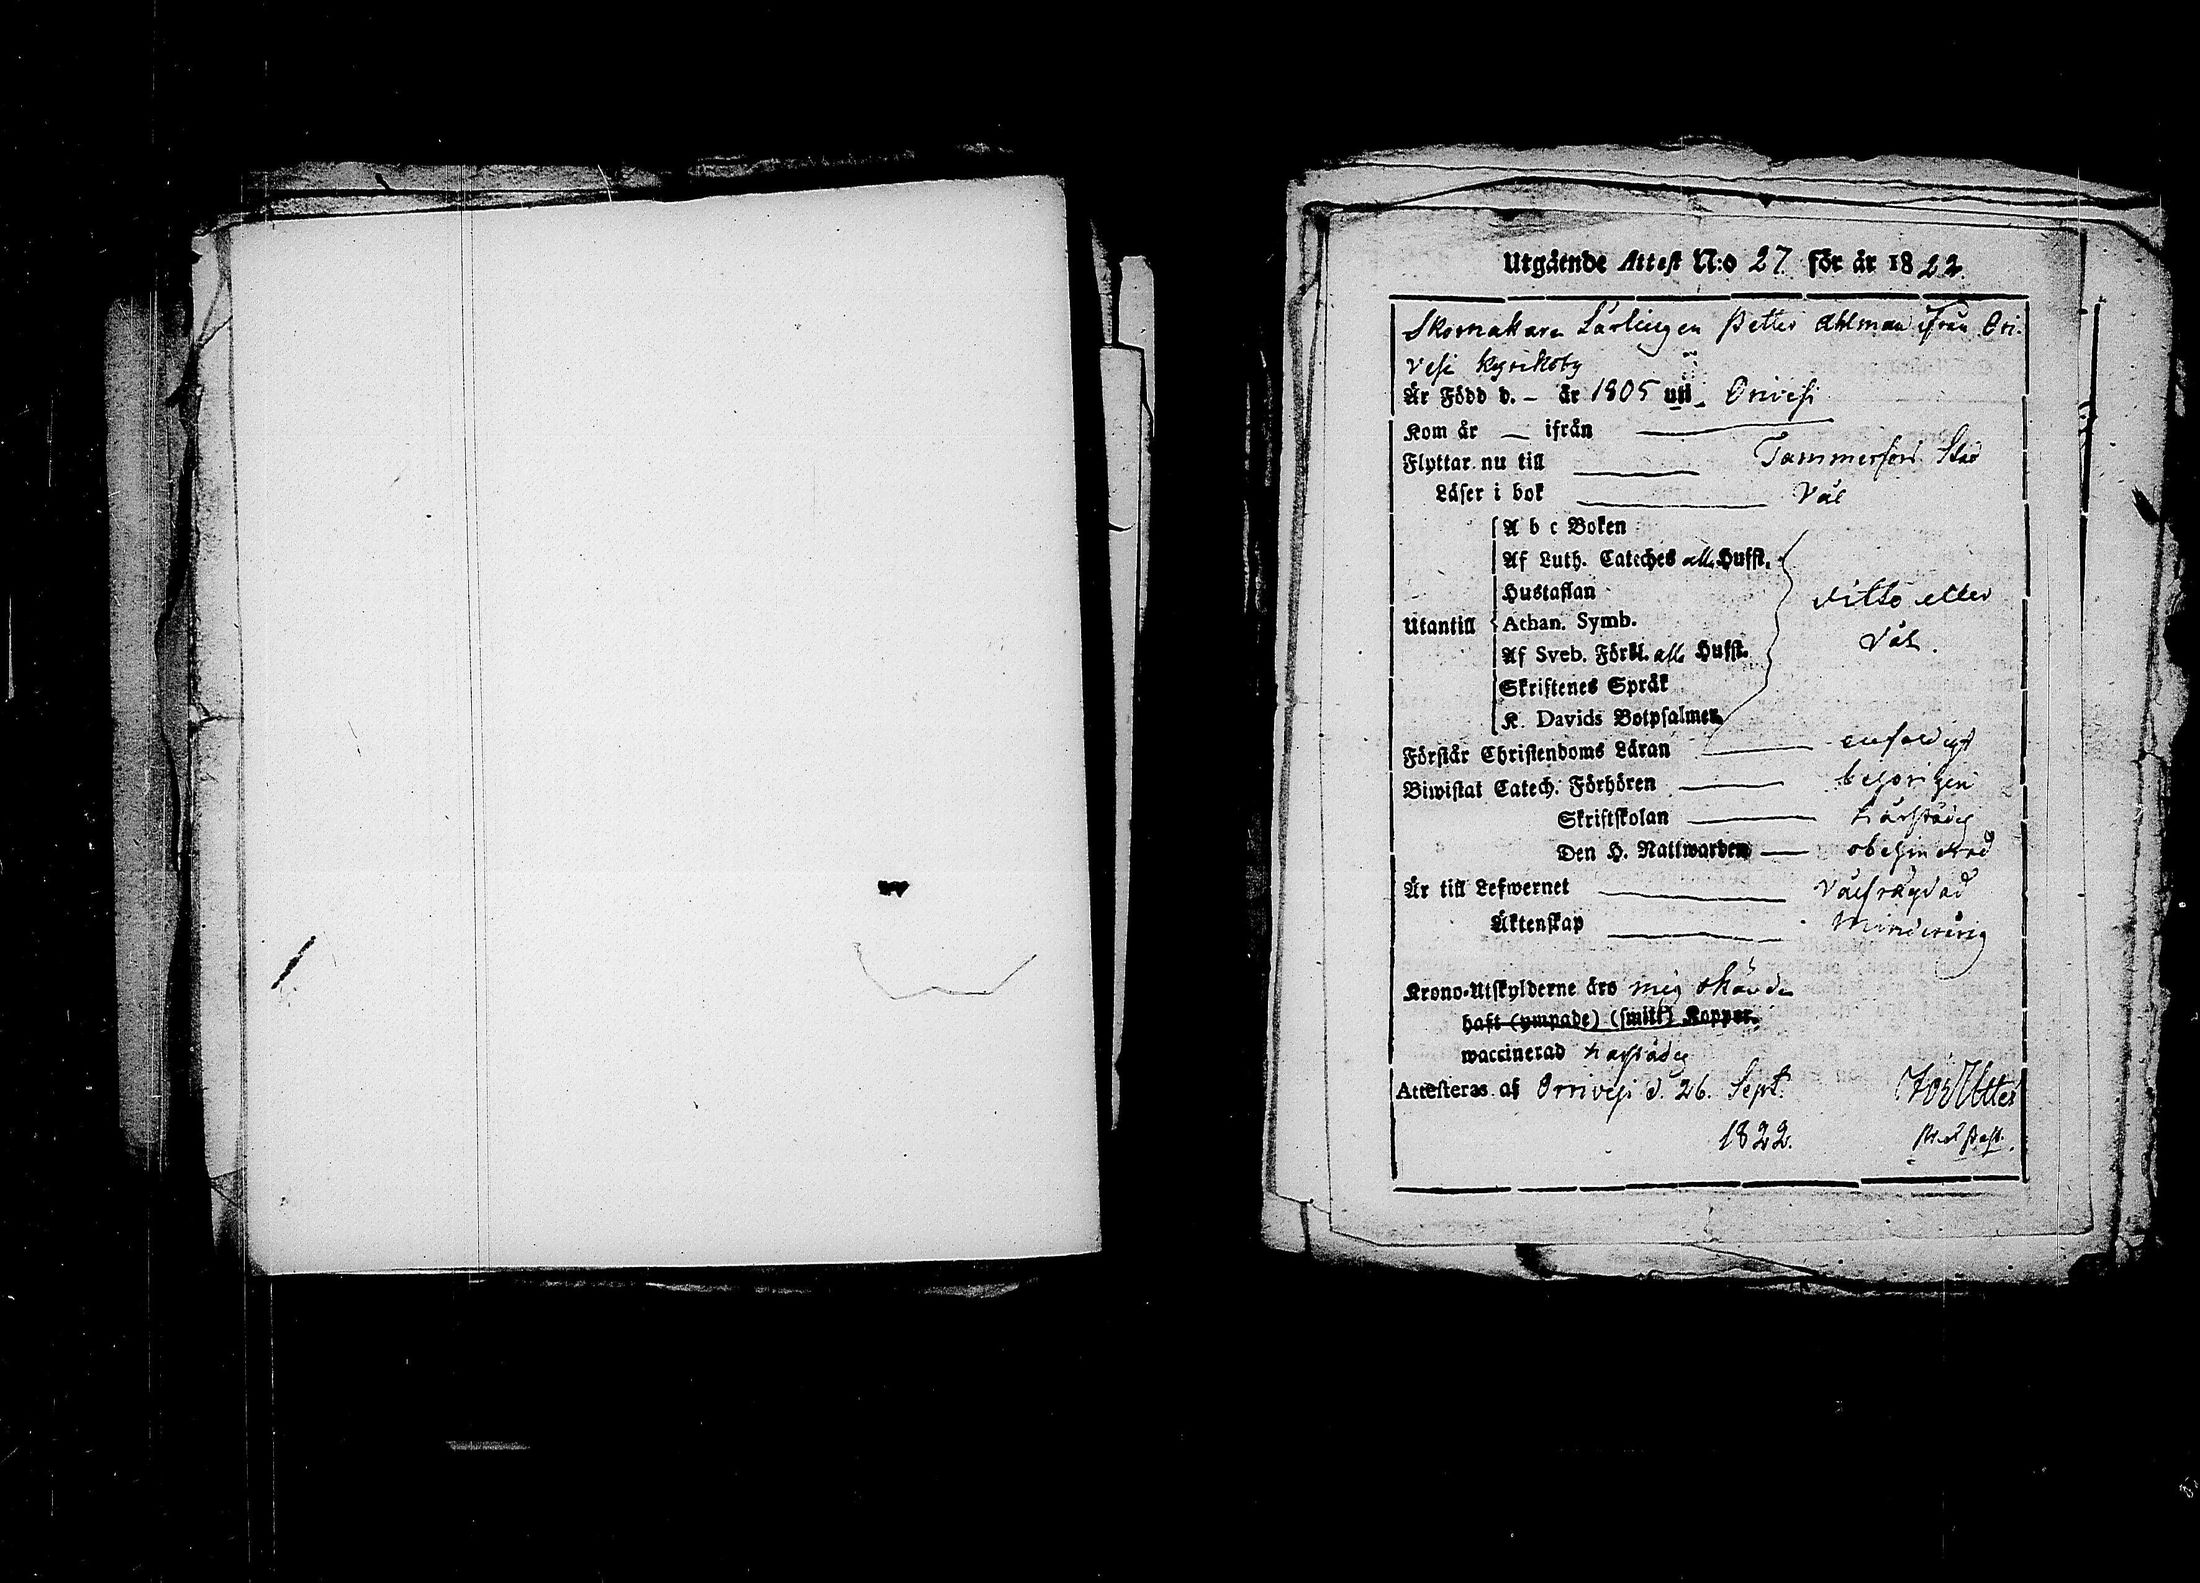 Utgående Attest N:o 27 för år 1822
Skomakare Lärlingen Petter Ahlman ifrån Ori-
vesi Kyrkoby
Är Född d. — år 1805 uti Orivesi
Kom år — ifrån
Flyttar nu till Tammerfors Stad
Läser i bok Väl
A b c Boken
Af Luth. Cateches alla Hufst.
Hustaflan
Utantill Athan. Symb.
ditto eller
Väl.
Af Sveb. Förkl. alla Hufst.
Skriftenes Språk
K. Davids Botpsalmer
Förstår Christendoms Läran enfaldigt
Biwistat Catech. Förhören behörigen
Skriftskolan härstädes
Den H. Nattwarden obehindrad
Är till Lefwernet Välfrägdad
Äktenskap Minderårig
Krono-Utskylderne äro mig okände
haft (ympade) (smitt) Koppor.
waccinerad härstädes
Attesteras af Orrivesi d. 26. Sept.
1822.